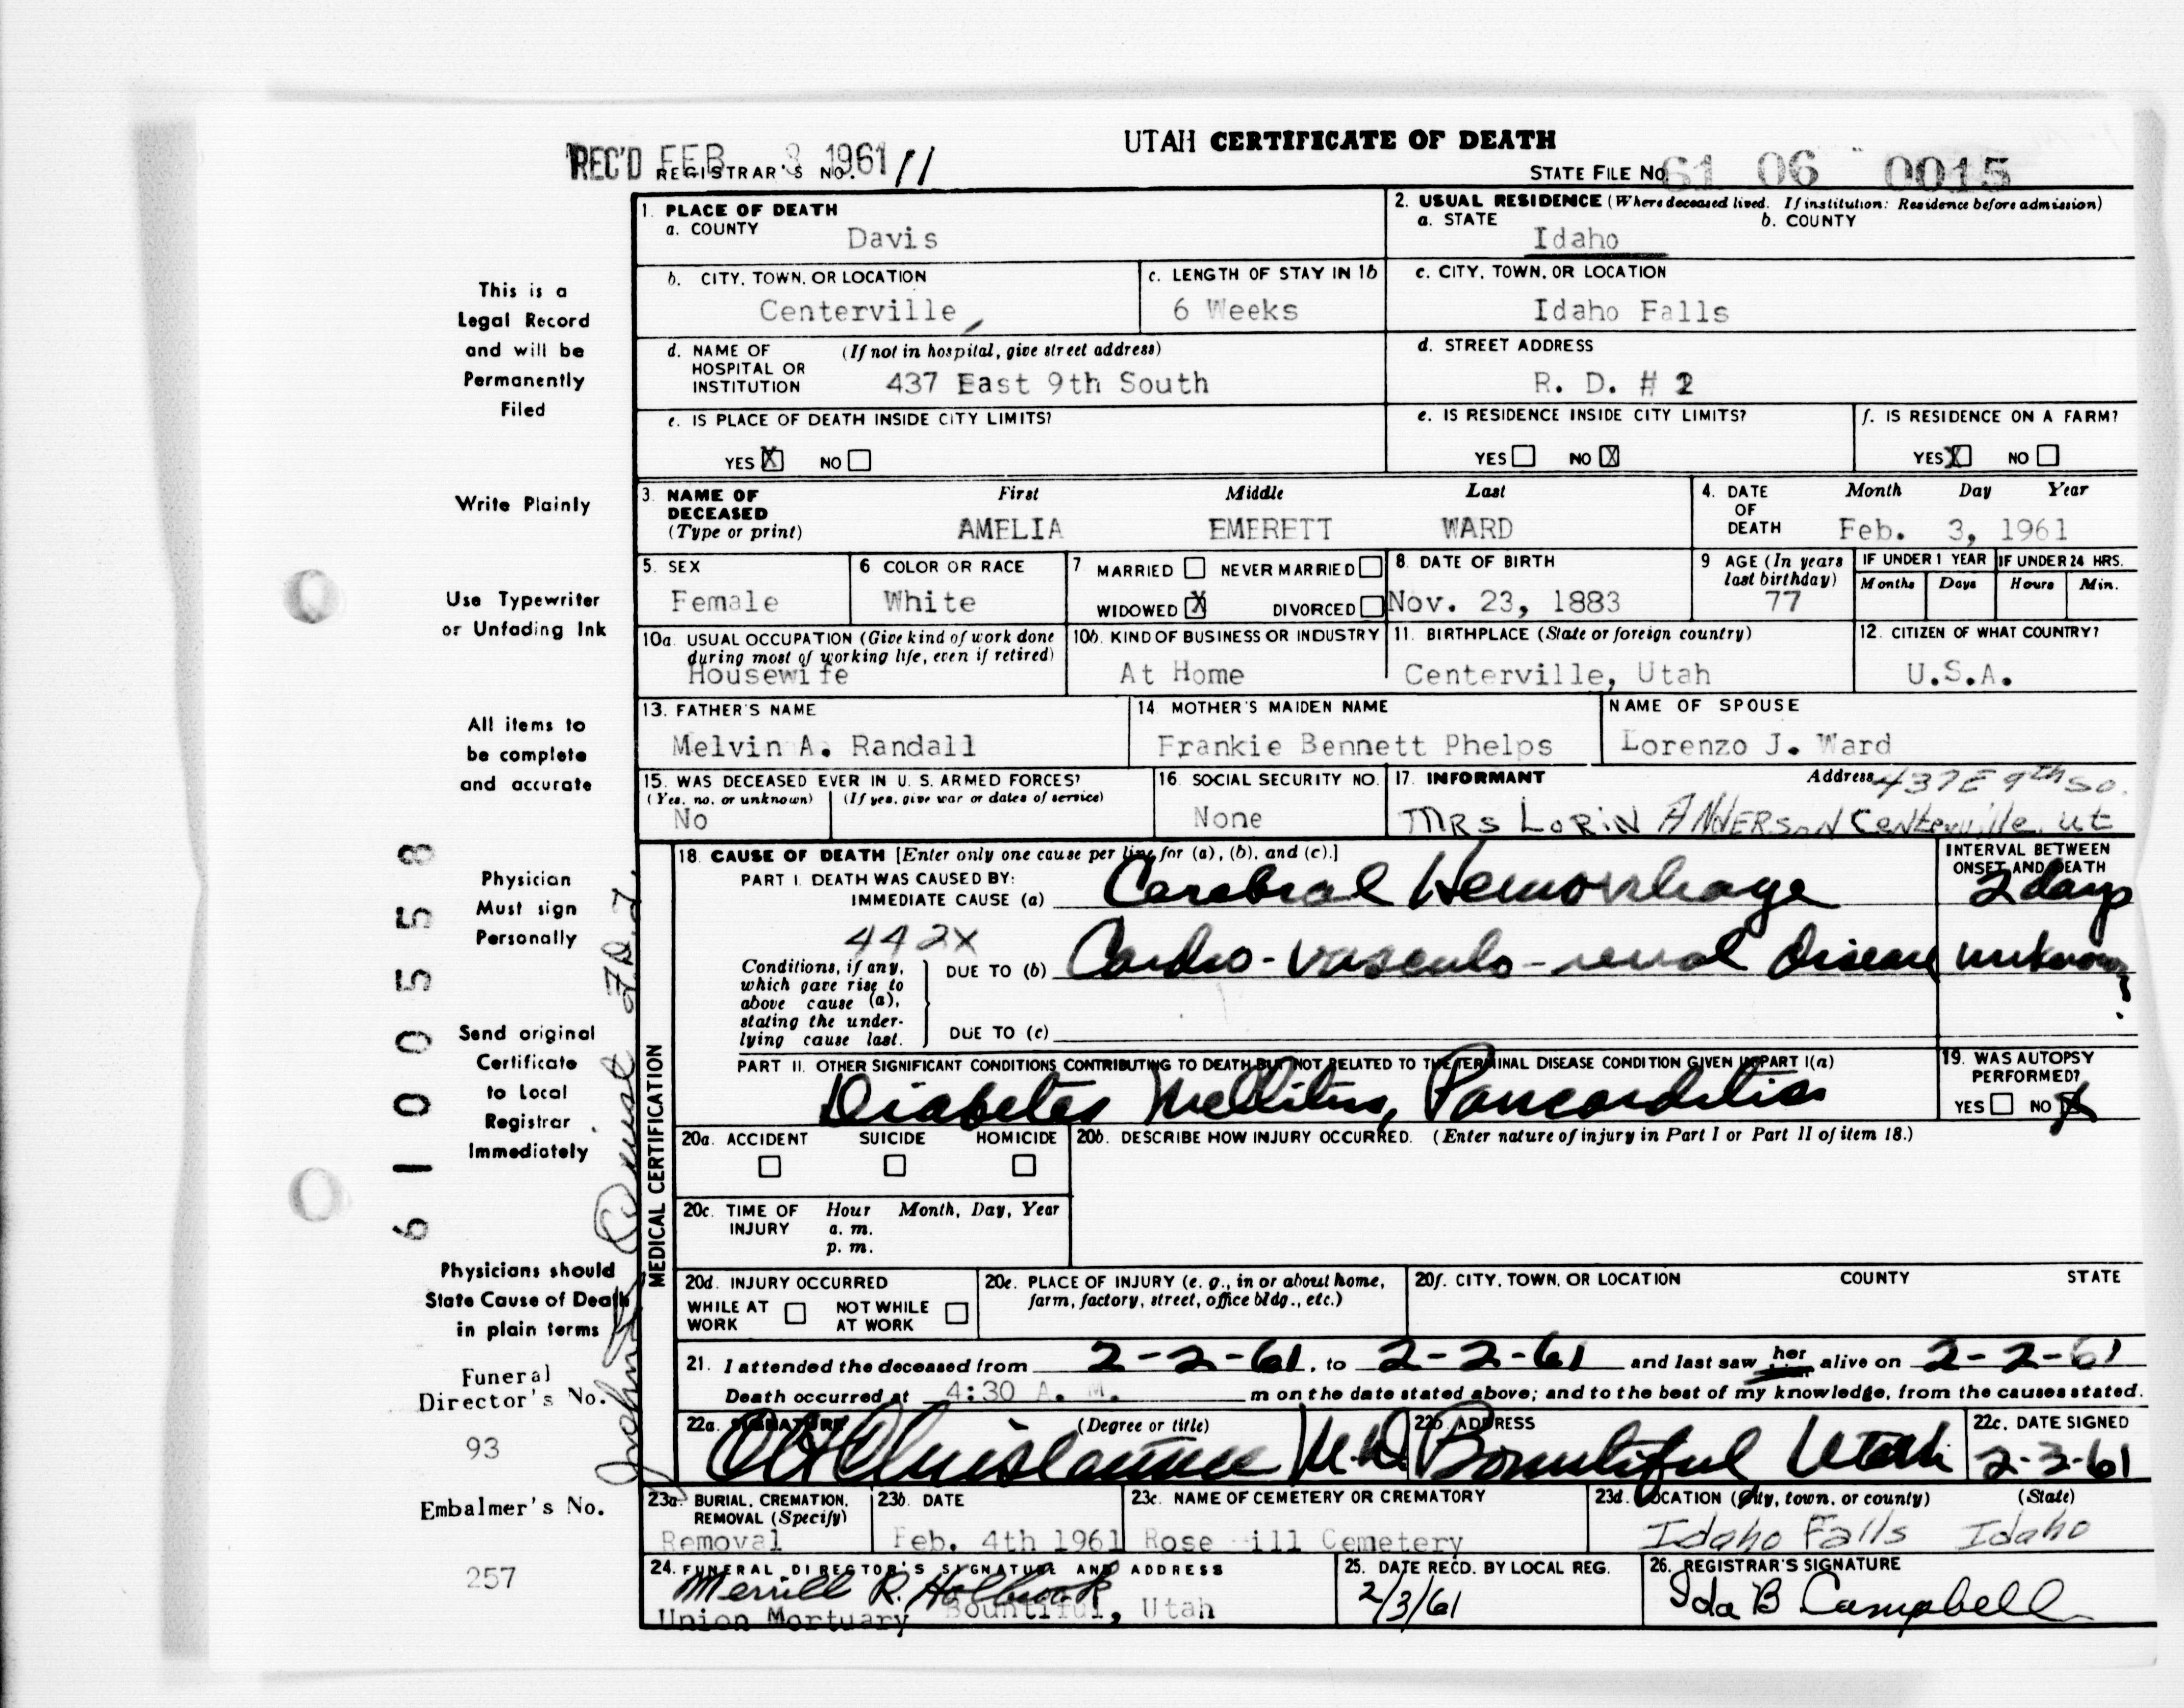 UTAH CERTIFICATE OF DEATH
REC'D FEB 3 1961
REGISTRAR'S NO. 11
STATE FILE NO. 61 06 0015
1. PLACE OF DEATH
a. COUNTY
Davis
2. USUAL RESIDENCE (Where deceased lived. If institution: Residence before admission)
a. STATE b. COUNTY
Idaho
b. CITY, TOWN, OR LOCATION
Centerville,
c. LENGTH OF STAY IN 1b
6 Weeks
c. CITY, TOWN, OR LOCATION
Idaho Falls
d. NAME OF HOSPITAL OR INSTITUTION (If not in hospital, give street address)
437 East 9th South
d. STREET ADDRESS
R. D. # 2
e. IS PLACE OF DEATH INSIDE CITY LIMITS?
YES X NO
e. IS RESIDENCE INSIDE CITY LIMITS?
YES NO X
f. IS RESIDENCE ON A FARM?
YES X NO
3. NAME OF DECEASED (Type or print)
First Middle Last
AMELIA EMERETT WARD
4. DATE OF DEATH
Month Day Year
Feb. 3, 1961
5. SEX
Female
6 COLOR OR RACE
White
7 MARRIED NEVER MARRIED
WIDOWED X DIVORCED
8. DATE OF BIRTH
Nov. 23, 1883
9 AGE (In years last birthday)
77
IF UNDER 1 YEAR IF UNDER 24 HRS.
Months Days Hours Min.
10a. USUAL OCCUPATION (Give kind of work done during most of working life, even if retired)
Housewife
10b. KIND OF BUSINESS OR INDUSTRY
At Home
11. BIRTHPLACE (State or foreign country)
Centerville, Utah
12. CITIZEN OF WHAT COUNTRY?
U.S.A.
13. FATHER'S NAME
Melvin A. Randall
14 MOTHER'S MAIDEN NAME
Frankie Bennett Phelps
NAME OF SPOUSE
Lorenzo J. Ward
15. WAS DECEASED EVER IN U. S. ARMED FORCES?
(Yes, no, or unknown) (If yes, give war or dates of service)
No
16. SOCIAL SECURITY NO.
None
17. INFORMANT Address 437 E 9th So.
MRS LORIN ANDERSON Centerville, ut
18. CAUSE OF DEATH [Enter only one cause per line for (a), (b), and (c).]
PART I. DEATH WAS CAUSED BY:
IMMEDIATE CAUSE (a) Cerebral Hemorrhage
INTERVAL BETWEEN ONSET AND DEATH
2 days
442X
Conditions, if any, which gave rise to above cause (a), stating the underlying cause last.
DUE TO (b) Cardio-vasculo-renal disease unknown ?
DUE TO (c)
PART II. OTHER SIGNIFICANT CONDITIONS CONTRIBUTING TO DEATH BUT NOT RELATED TO THE TERMINAL DISEASE CONDITION GIVEN IN PART I(a)
Diabetes Mellitus,
19. WAS AUTOPSY PERFORMED?
YES NO X
20a. ACCIDENT SUICIDE HOMICIDE
20b. DESCRIBE HOW INJURY OCCURRED. (Enter nature of injury in Part I or Part II of item 18.)
20c. TIME OF INJURY Hour Month, Day, Year
a. m.
p. m.
20d. INJURY OCCURRED
WHILE AT WORK NOT WHILE AT WORK
20e. PLACE OF INJURY (e. g., in or about home, farm, factory, street, office bldg., etc.)
20f. CITY, TOWN, OR LOCATION COUNTY STATE
21. I attended the deceased from 2-2-61, to 2-2-61 and last saw her alive on 2-2-61
Death occurred at 4:30 A. M. m on the date stated above; and to the best of my knowledge, from the causes stated.
22a. SIGNATURE (Degree or title)
M.D.
22b. ADDRESS
Bountiful Utah
22c. DATE SIGNED
2-3-61
23a. BURIAL, CREMATION, REMOVAL (Specify)
Removal
23b. DATE
Feb. 4th 1961
23c. NAME OF CEMETERY OR CREMATORY
Rose ill Cemetery
23d. LOCATION (City, town, or county) (State)
Idaho Falls Idaho
24. FUNERAL DIRECTOR'S SIGNATURE AND ADDRESS
Merrill R. Holbrook
Union Mortuary Bountiful, Utah
25. DATE RECD. BY LOCAL REG.
2/3/61
26. REGISTRAR'S SIGNATURE
Ida B Campbell
MEDICAL CERTIFICATION
This is a
Legal Record
and will be
Permanently
Filed
Write Plainly
Use Typewriter
or Unfading Ink
All items to
be complete
and accurate
Physician
Must sign
Personally
Send original
Certificate
to Local
Registrar
Immediately
Physicians should
State Cause of Death
in plain terms
Funeral
Director's No.
93
Embalmer's No.
257
6100558